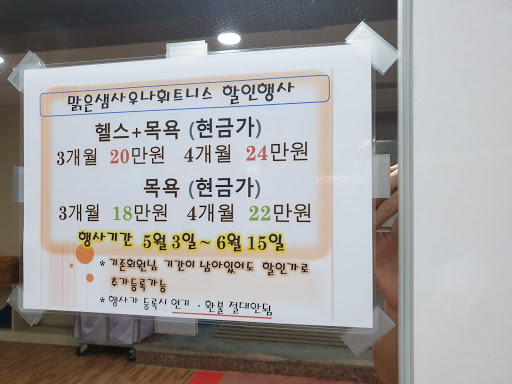 맑은샘사우나휘트니스 할인행사
헬스+목욕 (현금가)
3개월 20만원 4개월 24만원
목욕 (현금가)
3개월 18만원 4개월 22만원
행사기간 5월 3일~6월 15일
* 기존회원님 기간이 남아있어도 할인가로
추가등록가능
* 행사가 등록시 연기 · 환불 절대안됨